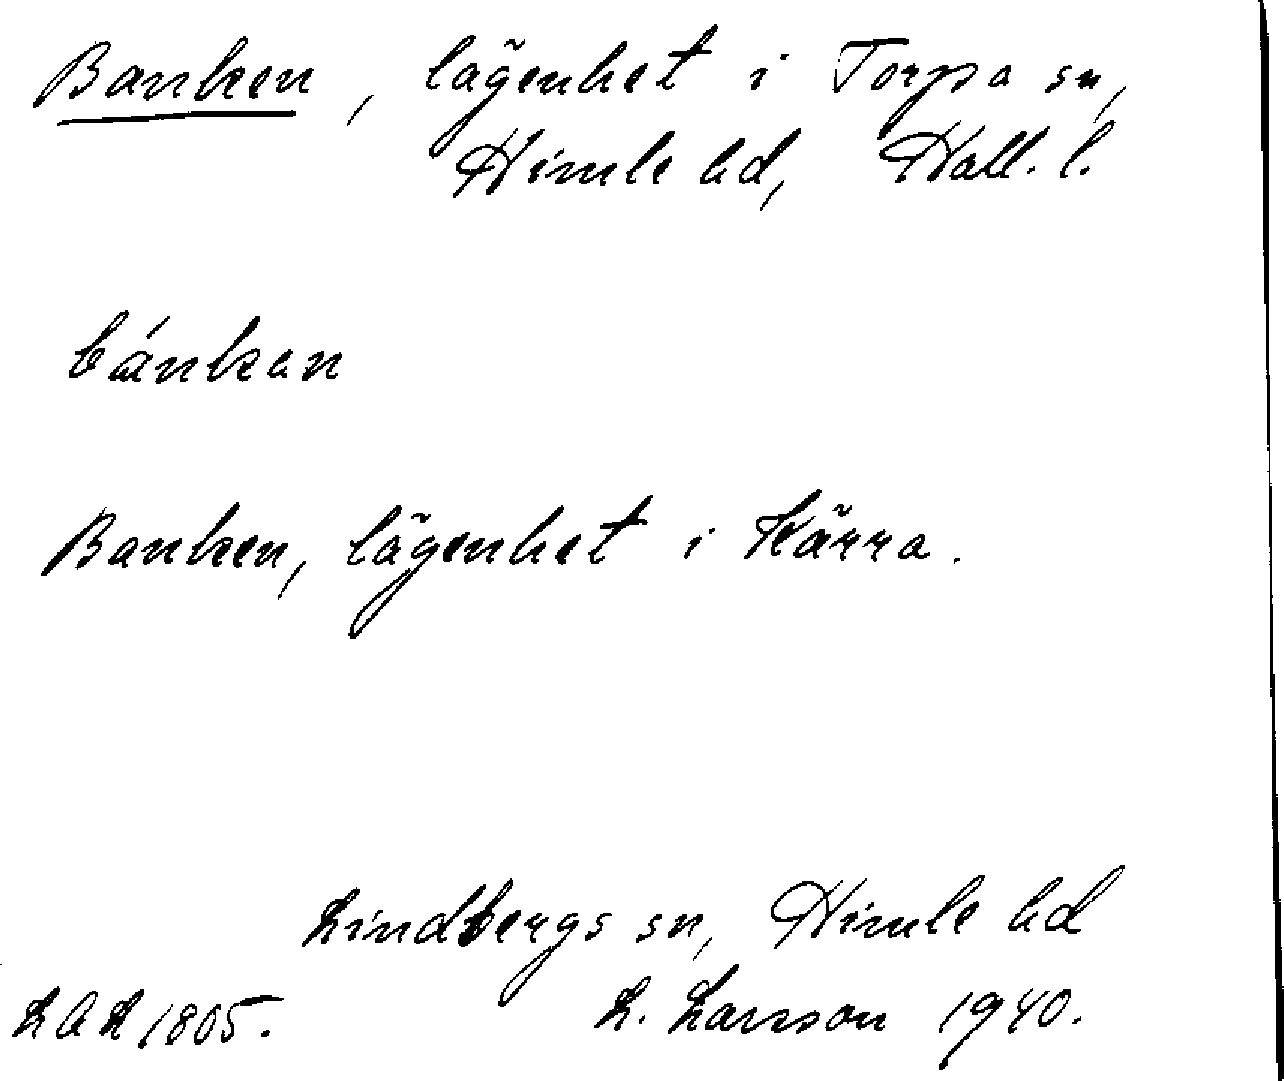 Banken, lägenhet i Torpa sn,
Himle hd, Hall. l.
bánkan
Banken, lägenhet i Kärra.
Lindbergs sn, Himle hd
LAL 1805. L. Larsson 1940.